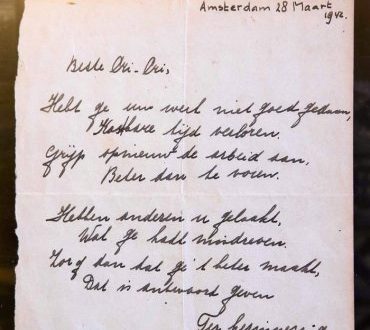 Amsterdam 28 Maart
1942.
Beste Cri-Cri,
Hebt ge uw werk niet goed gedaan,
Kostbare tijd verloren.
Grijp opnieuw de arbeid aan,
Beter dan te voren.
Hebben anderen u gelaakt,
Wat ge hadt misdreven.
Zorg dan dat ge 't beter maakt,
Dat is antwoord geven
Ter herinnering